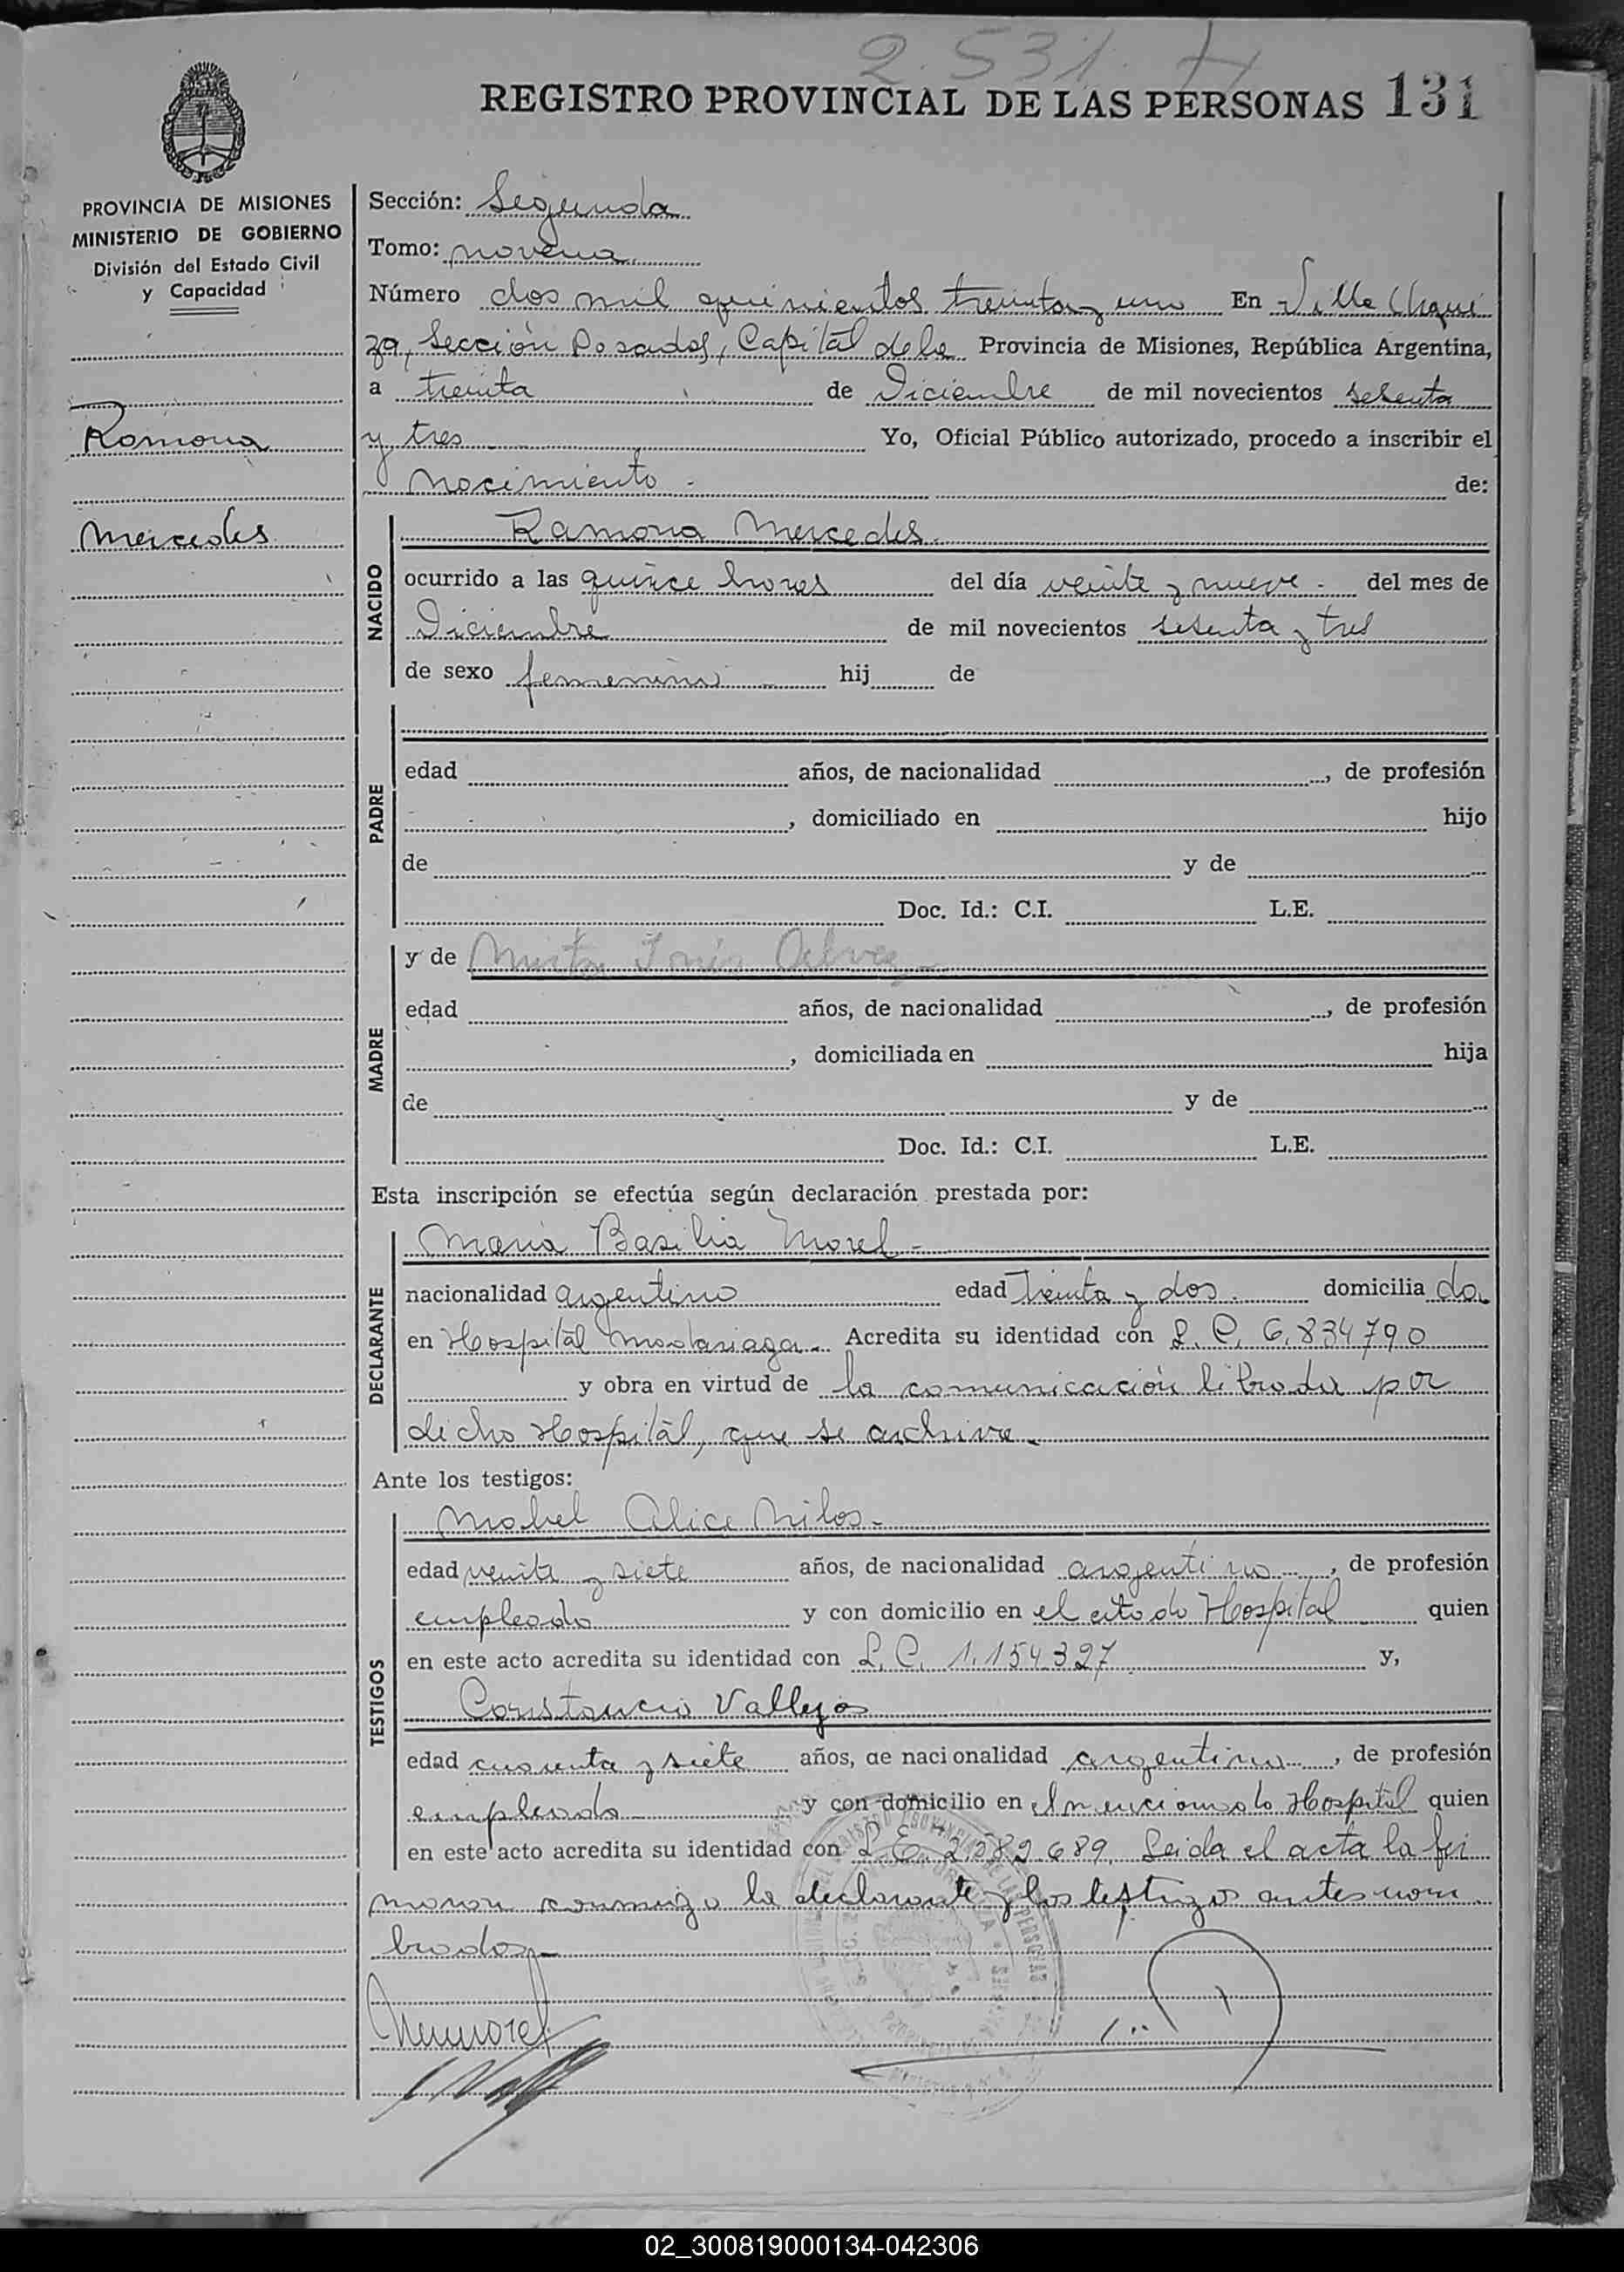 2.531.
REGISTRO PROVINCIAL DE LAS PERSONAS 131
PROVINCIA DE MISIONES
MINISTERIO DE GOBIERNO
División del Estado Civil
y Capacidad
Ramona
Mercedes
Sección: Segunda
Tomo: novena
Número dos mil quinientos treinta y uno En Villa Urqui
za, Sección Posadas, Capital de la Provincia de Misiones, República Argentina,
a treinta de Diciembre de mil novecientos setenta
y tres Yo, Oficial Público autorizado, procedo a inscribir el
nacimiento - de:
NACIDO
Ramona Mercedes.
ocurrido a las quince horas del día veinte y nueve - del mes de
Diciembre de mil novecientos setenta y tres
de sexo femenino - hij de
PADRE
edad años, de nacionalidad , de profesión
, domiciliado en hijo
de y de
Doc. Id.: C.I. L.E.
MADRE
y de Mirta Inés
edad años, de nacionalidad , de profesión
, domiciliada en hija
de y de
Doc. Id.: C.I. L.E.
Esta inscripción se efectúa según declaración prestada por:
DECLARANTE
Maria Basilia Morel -
nacionalidad argentina edad treinta y dos. domicilia da
en Hospital Madariaga - Acredita su identidad con L. C. 6.834790
y obra en virtud de la comunicación librada por
dicho Hospital, que se archiva.
Ante los testigos:
TESTIGOS
Mabel Alice Milos -
edad veinte y siete años, de nacionalidad argentina , de profesión
empleada y con domicilio en el citado Hospital quien
en este acto acredita su identidad con L. C. 1.154.327 y,
Constancio Vallejos
edad cuarenta y siete años, de nacionalidad argentino , de profesión
empleado y con domicilio en el mencionado Hospital quien
en este acto acredita su identidad con L. E. 2.582.689. Leida el acta la fir
maron conmigo la declarante y los testigos antes nom
brados -
02_300819000134-042306